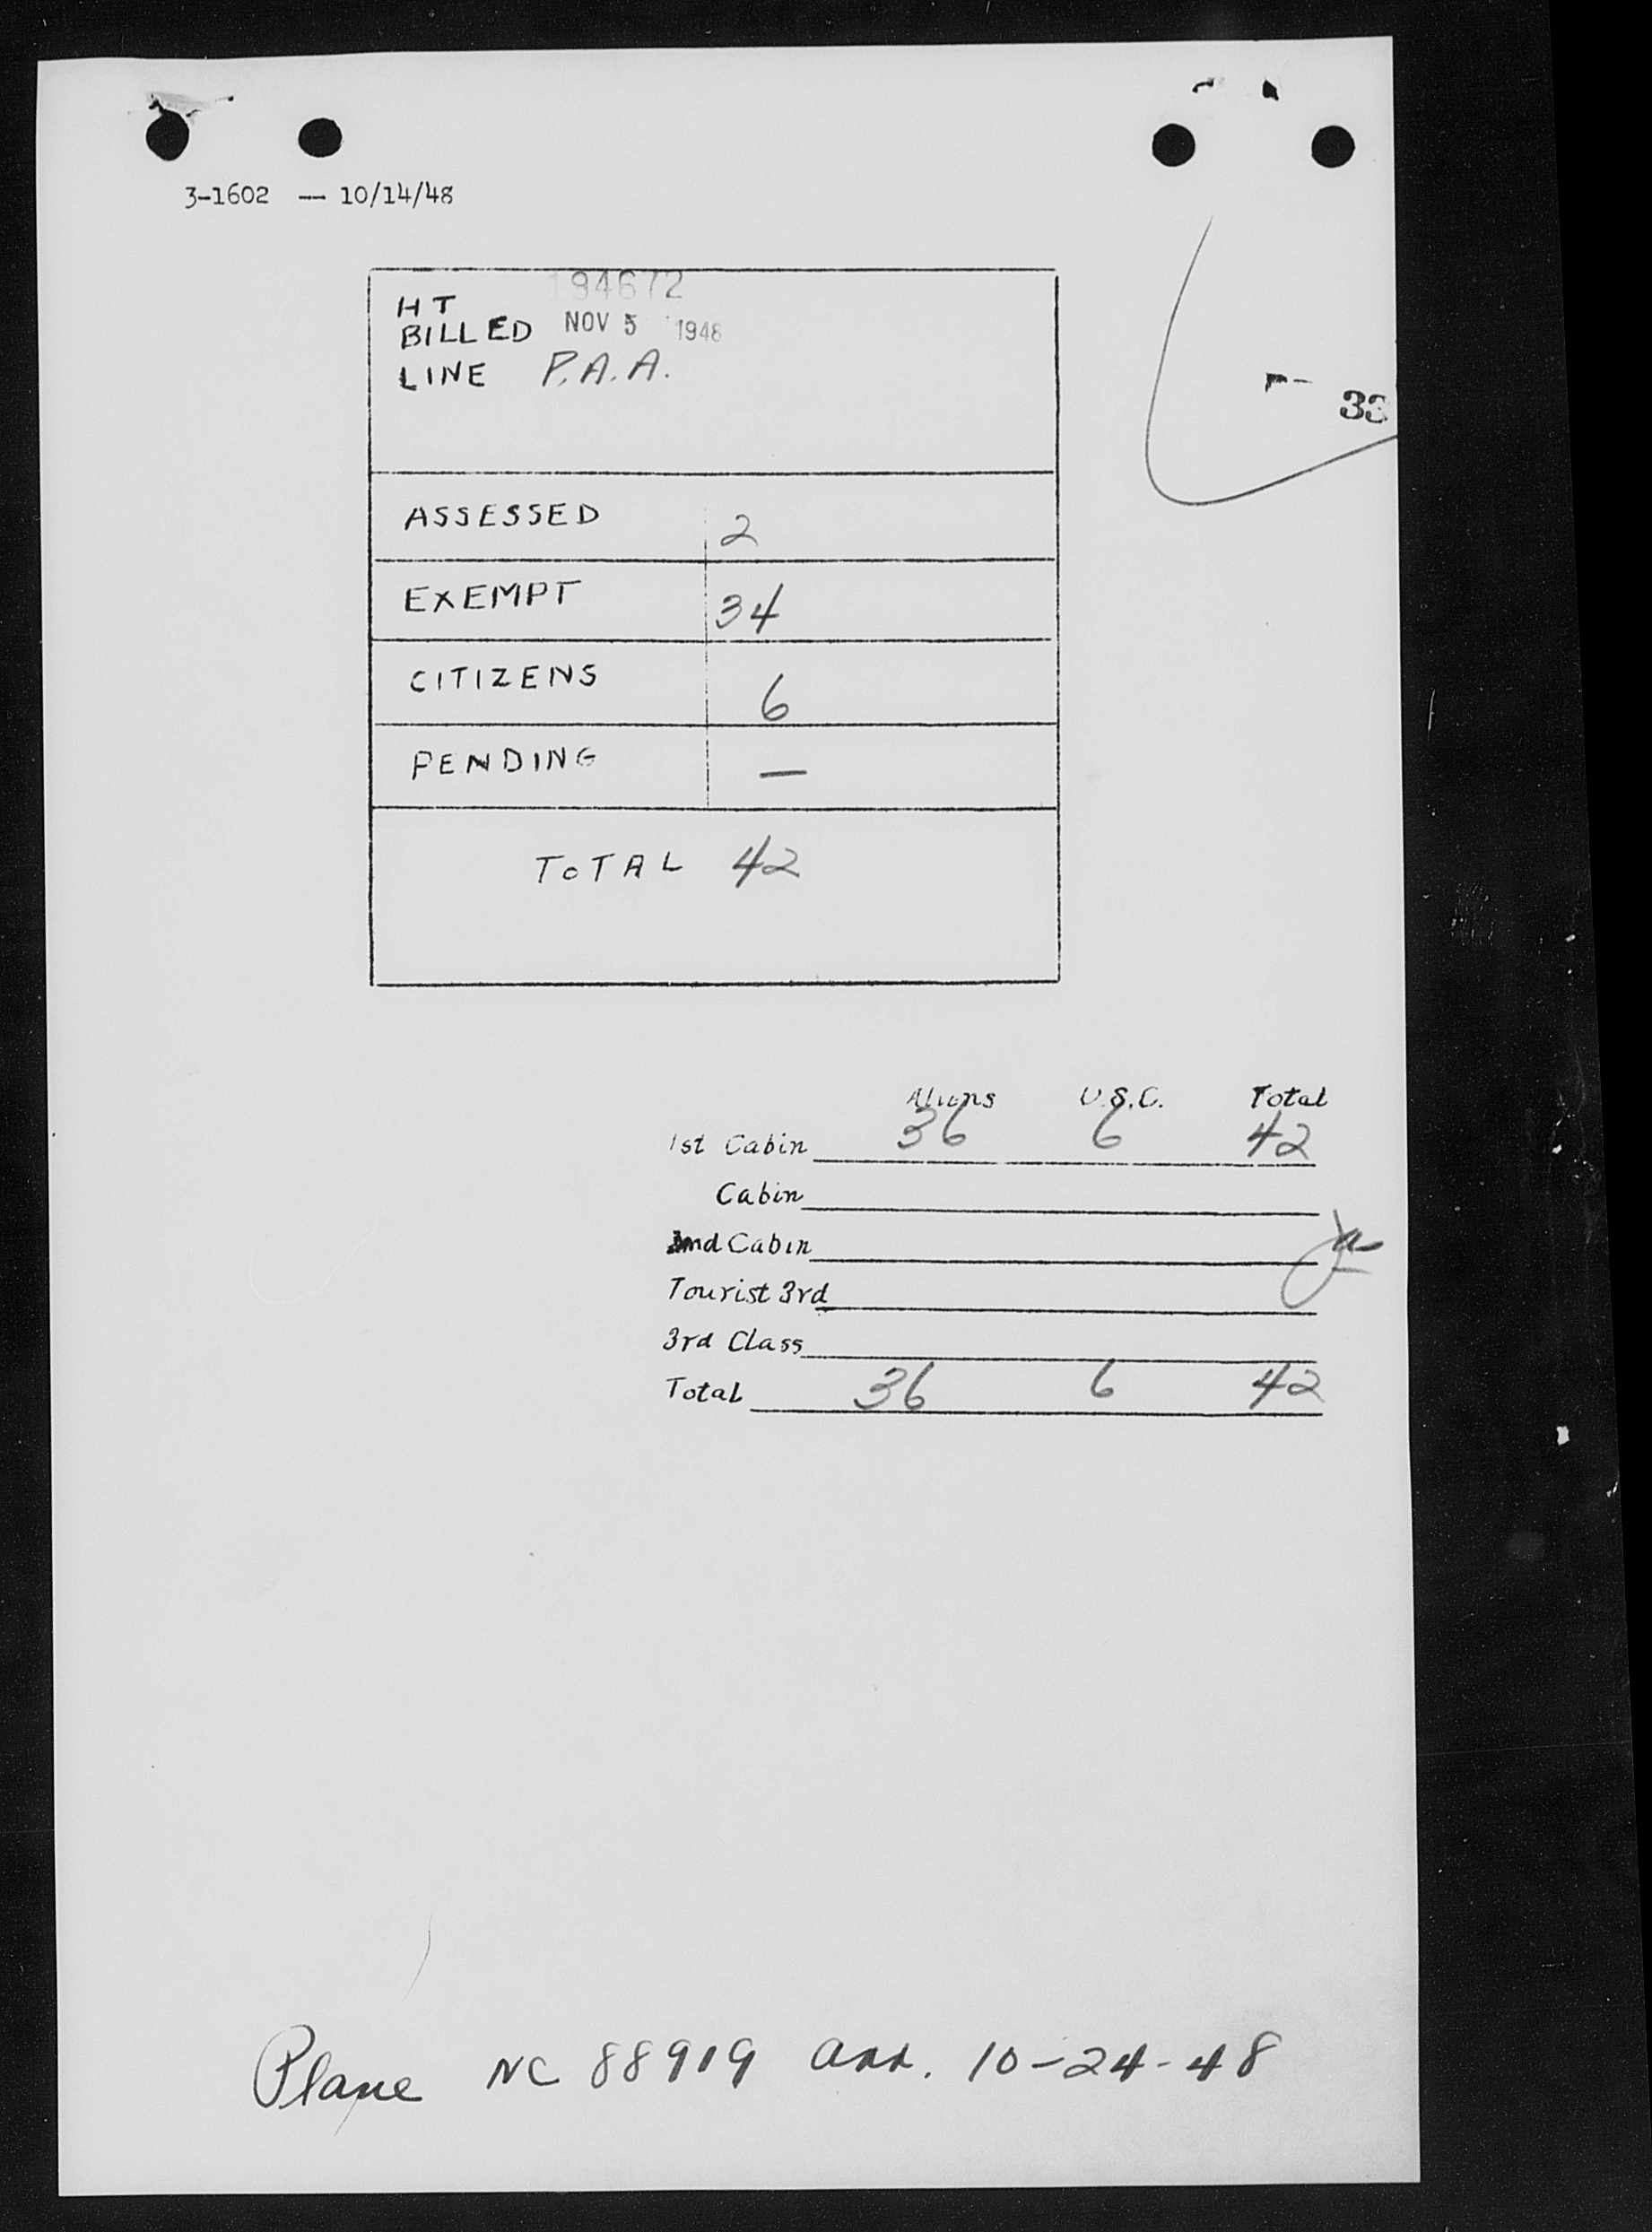 3-1602 -- 10/14/48
194672
HT
BILLED NOV 5 1948
LINE P.A.A.
33
ASSESSED 2
EXEMPT 34
CITIZENS 6
PENDING —
TOTAL 42
Aliens U.S.C. Total
1st Cabin 36 6 42
Cabin
2nd Cabin
Tourist 3rd
3rd Class
Total 36 6 42
Plane NC 88919 arr. 10-24-48